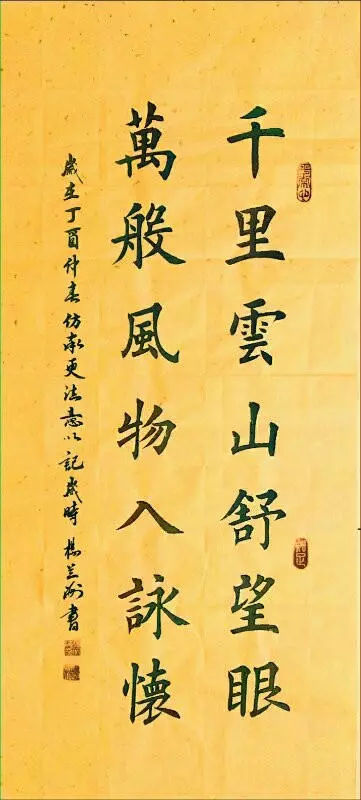 千里雲山舒望眼
萬般風物入詠懷
歲在丁酉仲春仿承更法意以記歲時 楊兰洲書